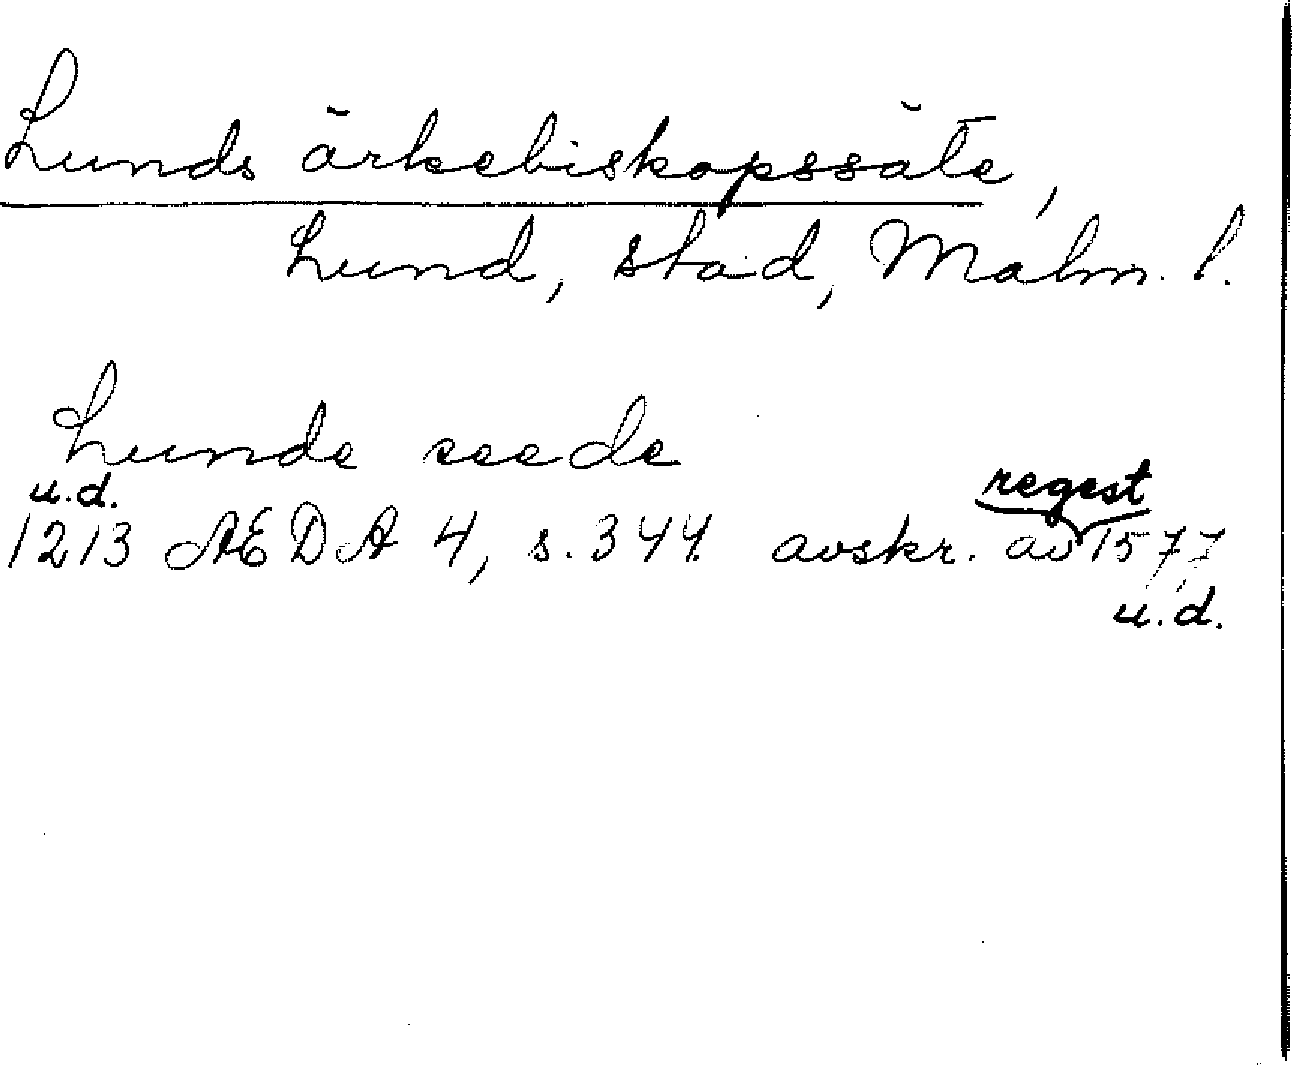 Lunds ärkebiskopssäte,
Lund, stad, Malm. l.
Lunde seede
u.d.
regest
1213 AEDA 4, s. 344. avskr. av 1577
u.d.